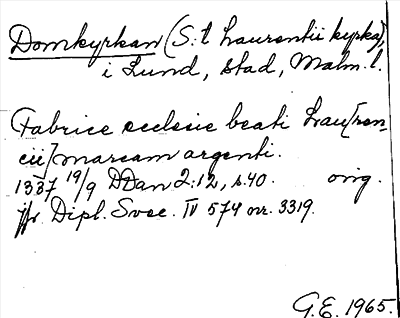 Domkyrkan (S:t Laurentii kyrka),
i Lund, stad, Malm. l.
Fabrice ecclesie beati Lau[ren-
cii] marcam argenti.
1337 19/9 DDan 2:12, s. 40. orig.
jfr Dipl. Svec. IV 574 nr. 3319.
G.E. 1965.